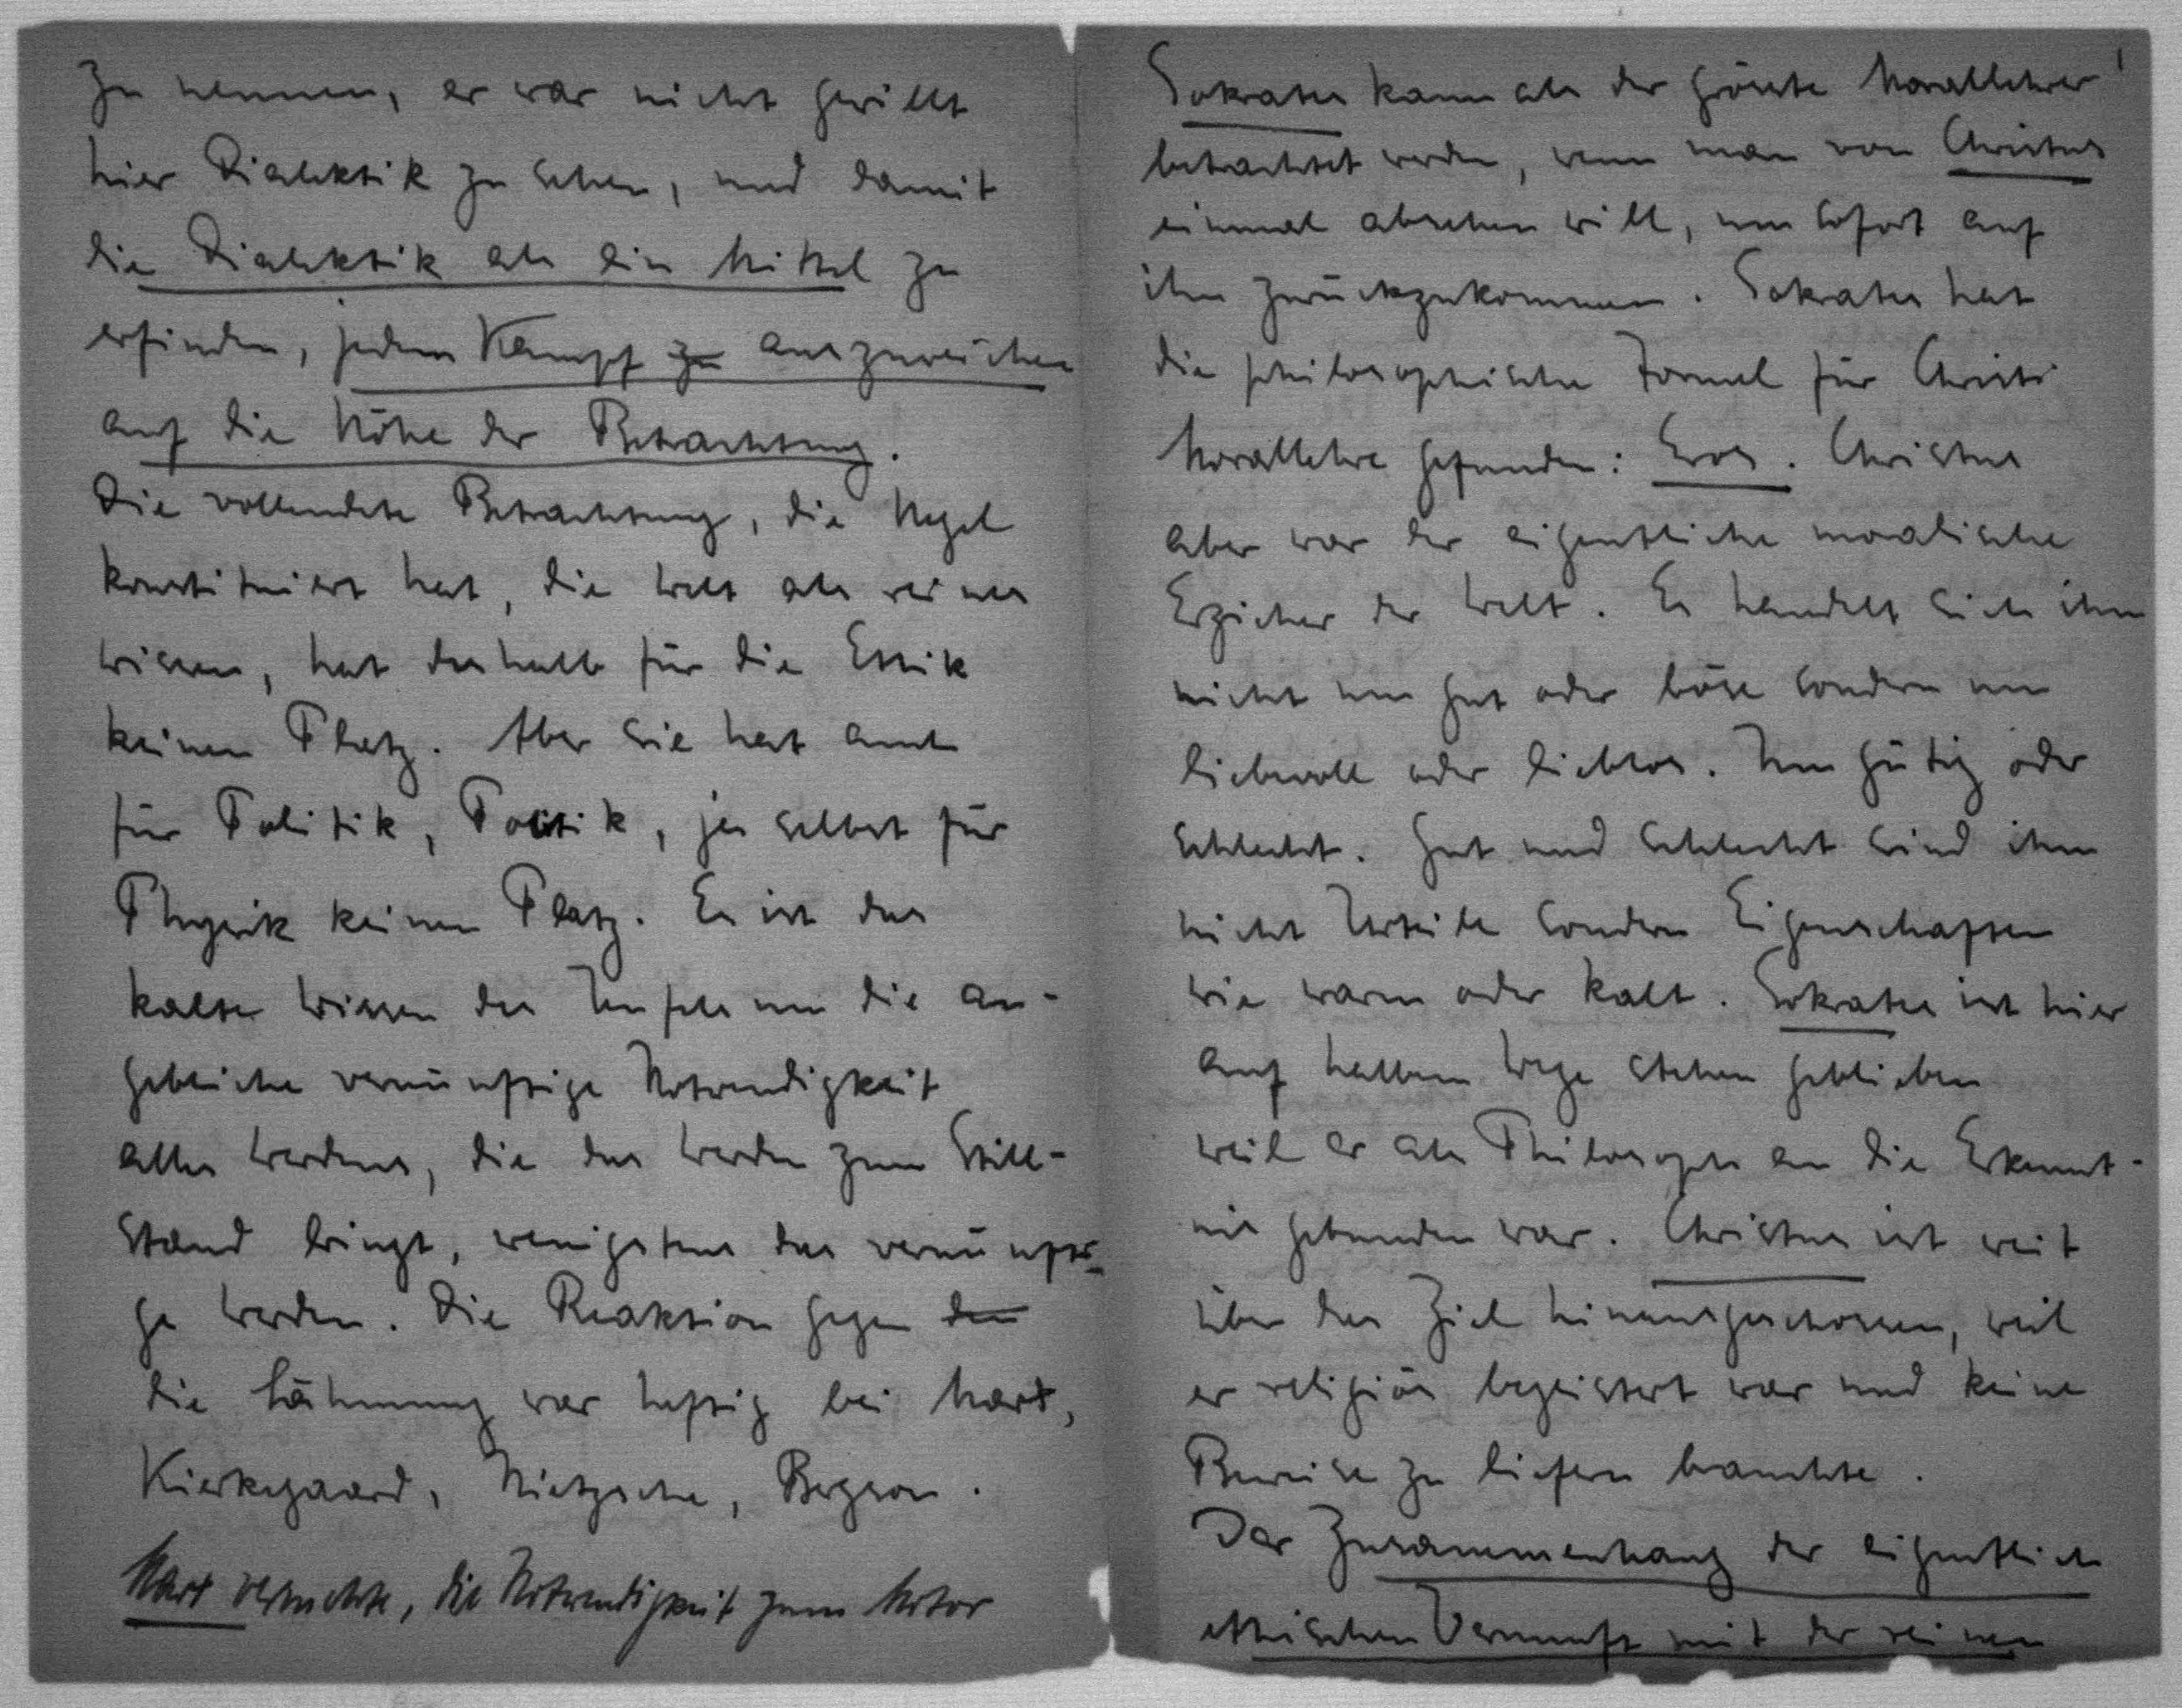 zu nennen, er war nicht gewillt
hier Dialektik zu sehen, und damit
die Dialektik als ein Mittel zu
erfinden, jedem Kampf zu auszuweichen
auf die Höhe der Betrachtung.
Die vollendete Betrachtung, die Hegel
konstituiert hat, die Welt als reines
Wissen, hat deshalb für die Ethik
keinen Platz. Aber sie hat auch
für Politik, Poetik, ja selbst für
Physik keinen Platz. Es ist das
kalte Wissen des Teufels um die an-
gebliche vernünftige Notwendigkeit
alles Werdens, die das Werden zum Still-
stand bringt, wenigstens das vernünfti-
ge Werden. Die Reaktion gegen den
die Lähmung war heftig bei Marx,
Kierkegaard, Nietzsche, Bergson.
Marx versuchte, die Notwendigkeit zum Motor
Sokrates kann als der grösste Morallehrer
betrachtet werden, wenn man von Christus
einmal absehen will, um sofort auf
ihn zurückzukommen. Sokrates hat
die philosophische Formel für Christi
Morallehre gefunden: Eros. Christus
aber war der eigentliche moralische
Erzieher der Welt. Es handelt sich ihm
nicht um gut oder böse sondern um
liebevoll oder lieblos. Um gütig oder
schlecht. Gut und schlecht sind ihm
nicht Urteile sondern Eigenschaften
wie warm oder kalt. Sokrates ist hier
auf halbem Wege stehen geblieben
weil er als Philosoph an die Erkennt-
nis gebunden war. Christus ist weit
über das Ziel hinausgeschossen, weil
er religiös begeistert war und keine
Beweise zu liefern brauchte.
Der Zusammenhang der eigentlich
ethischen Vernunft mit der reinen